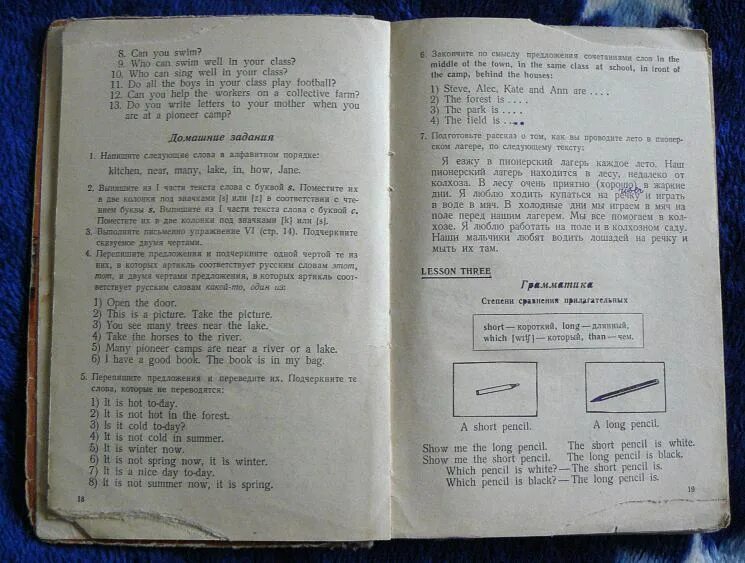 8. Can you swim?
9. Who can swim well in your class?
10. Who can sing well in your class?
11. Do all the boys in your class play football?
12. Can you help the workers on a collective farm?
13. Do you write letters to your mother when you
are at a pioneer camp?
Домашние задания
1. Напишите следующие слова в алфавитном порядке:
kitchen, near, many, lake, in, how, Jane.
2. Выпишите из I части текста слова с буквой s. Поместите их
в две колонки под значками [s] или [z] в соответствии с чте-
нием буквы s. Выпишите из I части текста слова с буквой c.
Поместите их в две колонки под значками [k] или [s].
3. Выполните письменно упражнение VI (стр. 14). Подчеркните
сказуемое двумя чертами.
4. Перепишите предложения и подчеркните одной чертой те из
них, в которых артикль соответствует русским словам этот,
тот, и двумя чертами предложения, в которых артикль соот-
ветствует русским словам какой-то, один из:
1) Open the door.
2) This is a picture. Take the picture.
3) You see many trees near the lake.
4) Take the horses to the river.
5) Many pioneer camps are near a river or a lake.
6) I have a good book. The book is in my bag.
5. Перепишите предложения и переведите их. Подчеркните те
слова, которые не переводятся:
1) It is hot to-day.
2) It is not hot in the forest.
3) Is it cold to-day?
4) It is not cold in summer.
5) It is winter now.
6) It is not spring now, it is winter.
7) It is a nice day to-day.
8) It is not summer now, it is spring.
18
6. Закончите по смыслу предложения сочетаниями слов in the
middle of the town, in the same class at school, in front of
the camp, behind the houses:
1) Steve, Alec, Kate and Ann are ....
2) The forest is ....
3) The park is ....
4) The field is ....
7. Подготовьте рассказ о том, как вы проводите лето в пионер-
ском лагере, по следующему тексту:
Я езжу в пионерский лагерь каждое лето. Наш
пионерский лагерь находится в лесу, недалеко от
колхоза. В лесу очень приятно (хорошо) в жаркие
дни. Я люблю ходить купаться на речку и играть
в воде в мяч. В холодные дни мы играем в мяч на
поле перед нашим лагерем. Мы все помогаем в кол-
хозе. Я люблю работать на поле и в колхозном саду.
Наши мальчики любят водить лошадей на речку и
мыть их там.
LESSON THREE
Грамматика
Степени сравнения прилагательных
short — короткий, long — длинный,
which [wɪtʃ] — который, than — чем.
A short pencil.
A long pencil.
Show me the long pencil. The short pencil is white.
Show me the short pencil. The long pencil is black.
Which pencil is white? — The short pencil is.
Which pencil is black? — The long pencil is.
19